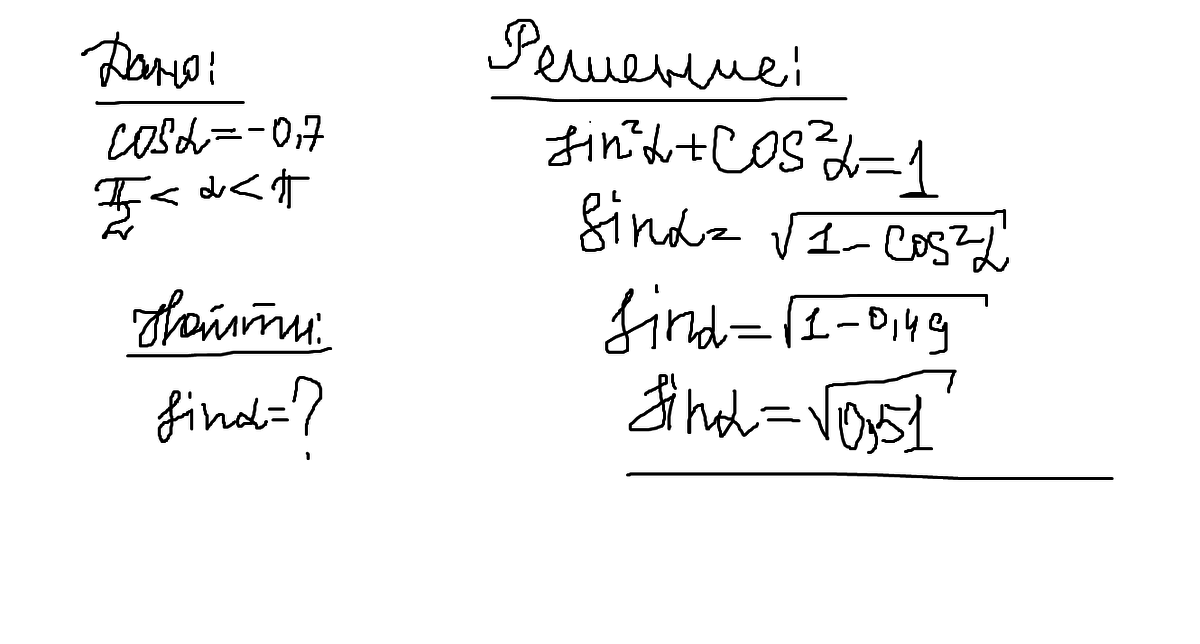 Дано:
cosα=-0,7
π/2 < α < π
Найти:
sinα=?
Решение:
sin²α+cos²α=1
sinα= √1-cos²α
sinα=√1-0,49
sinα=√0,51